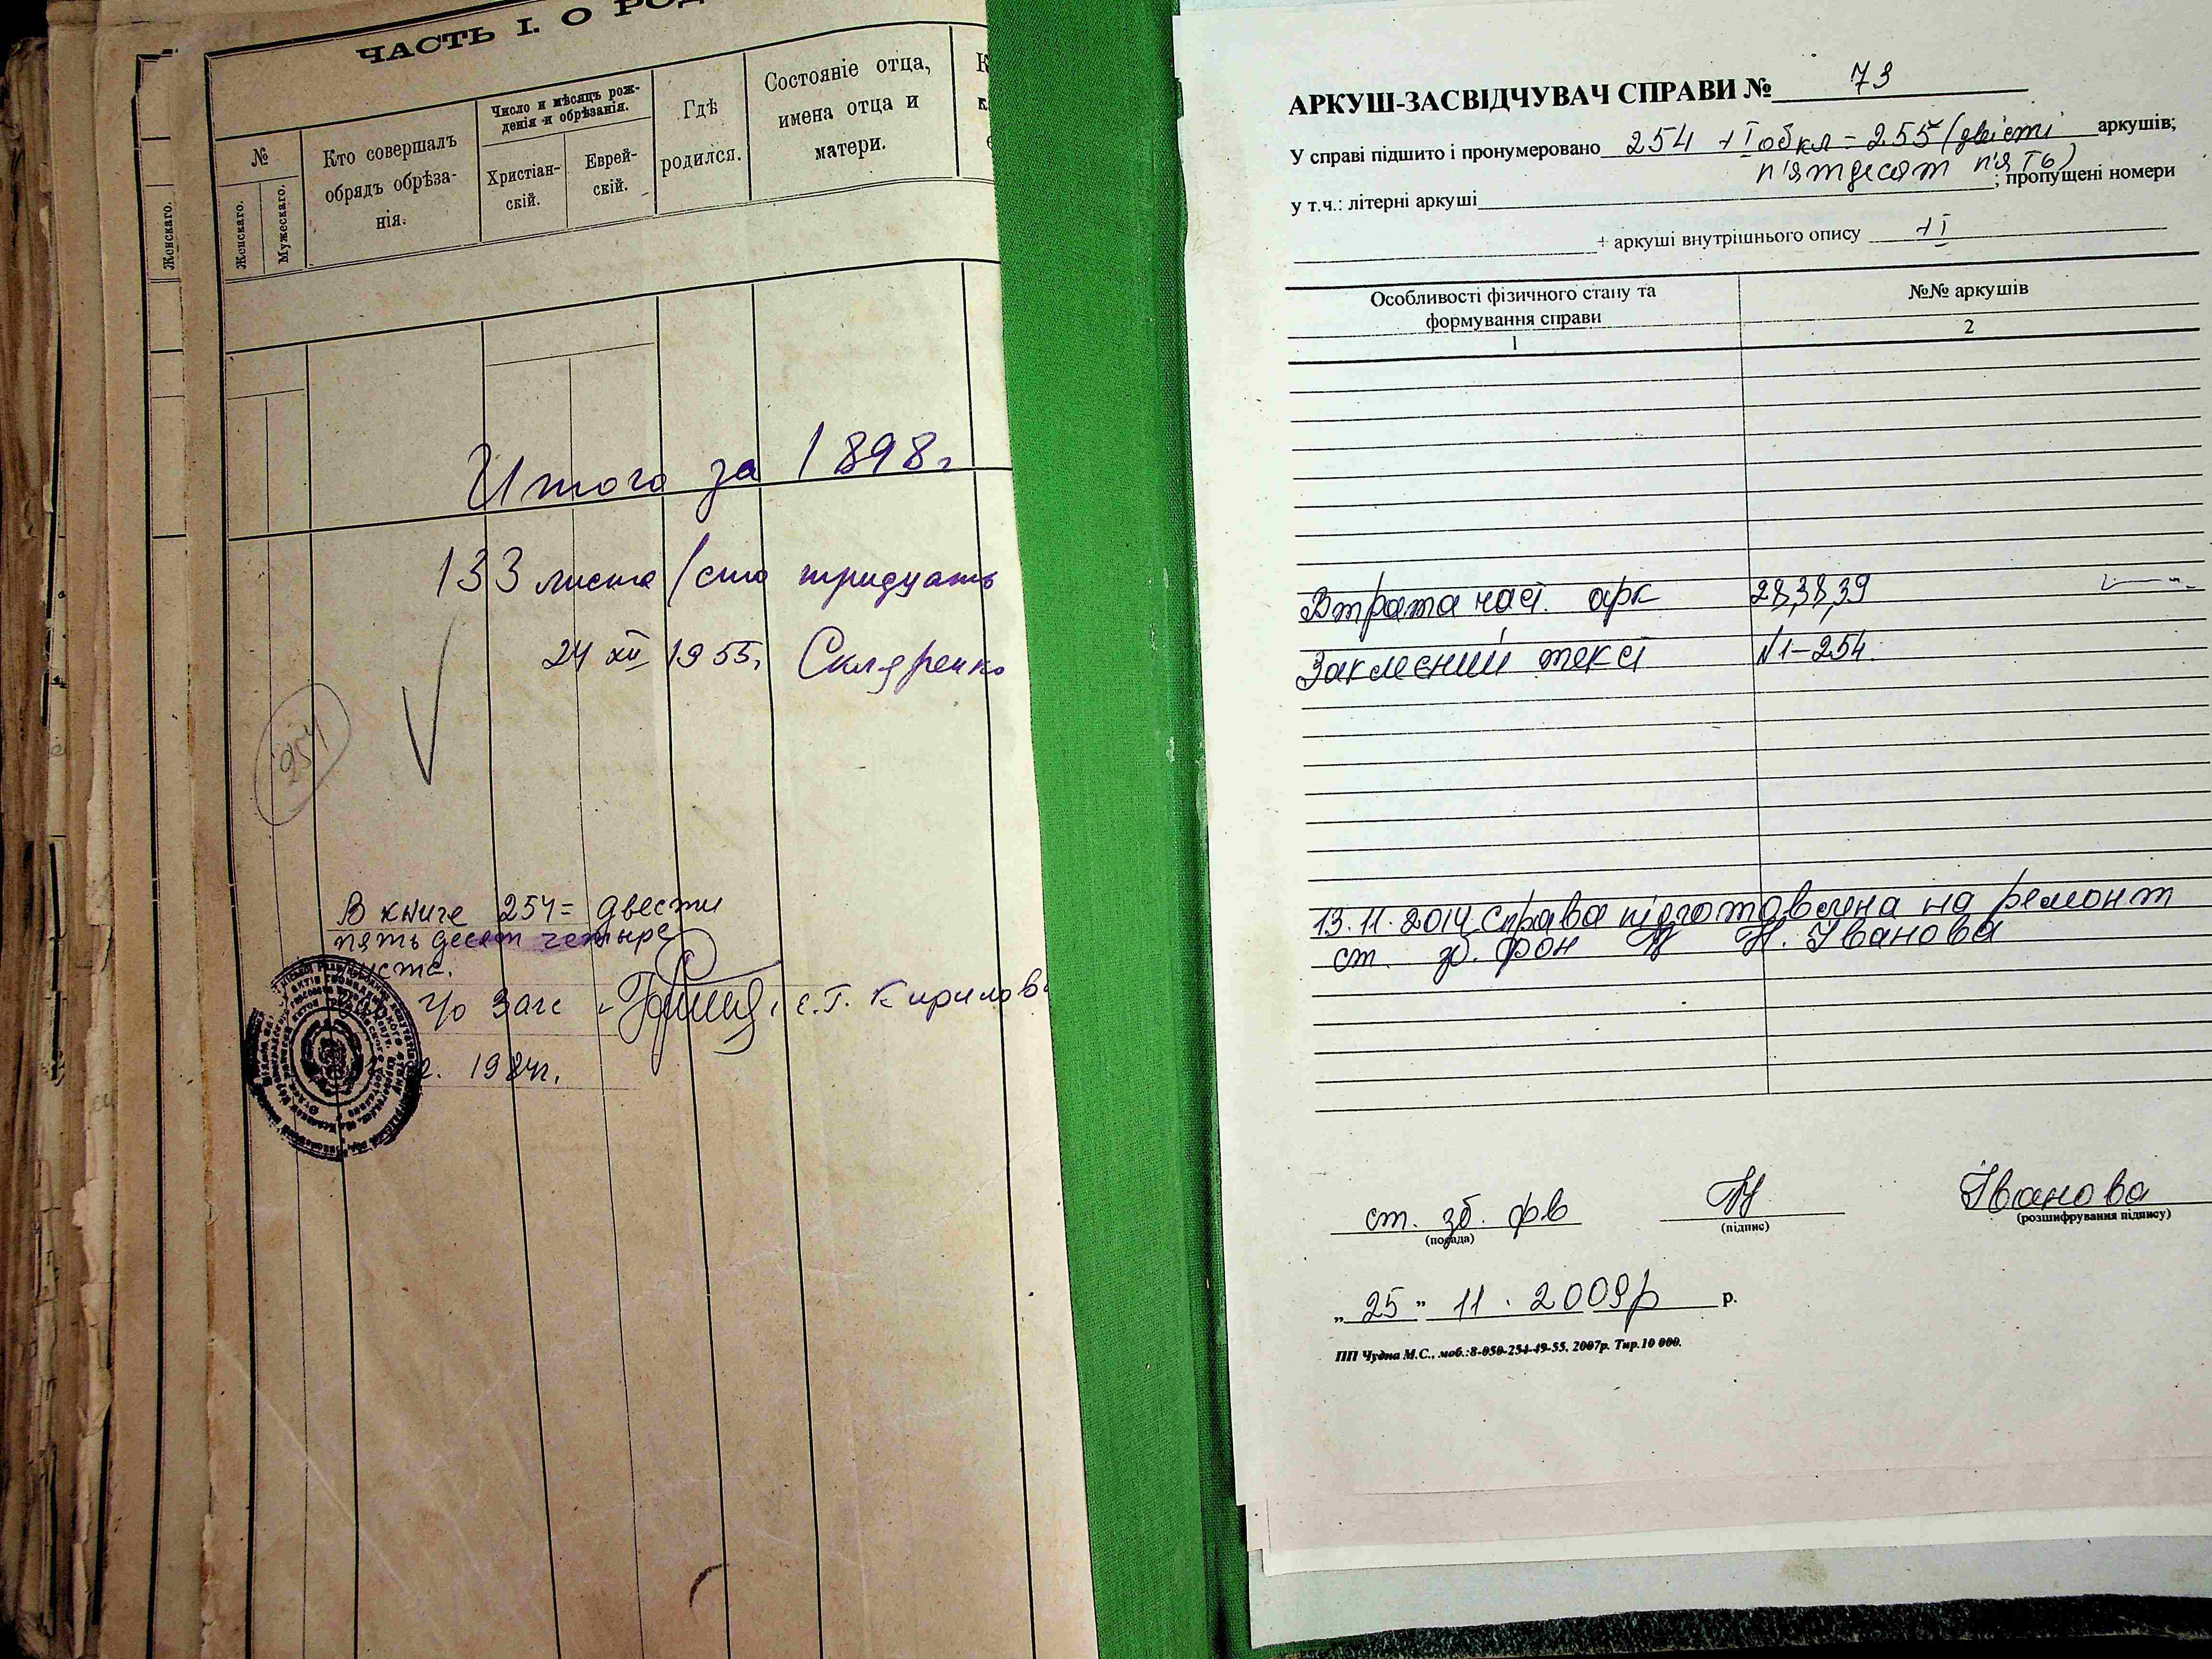 ЧАСТЬ I. О РОД
№
Женскаго.
Мужескаго.
Кто совершалъ
обрядъ обрѣза-
нія.
Число и мѣсяцъ рож-
денія и обрѣзанія.
Христіан-
скій.
Еврей-
скій.
Гдѣ
родился.
Состояніе отца,
имена отца и
матери.
Женскаго.
Итого за 1898г
133 листа /сто тридцать
24 XII 1955, Скляренко
254
В книге 254= двести
пятьдесят четыре
листа.
ЗАГС Е.Г. Кирилов
1984г.
АРКУШ-ЗАСВІДЧУВАЧ СПРАВИ № 73
У справі підшито і пронумеровано 254 + I обкл = 255 (двісті аркушів;
п'ятдесят п'ять)
у т.ч.: літерні аркуші ; пропущені номери
+ аркуші внутрішнього опису +I
Особливості фізичного стану та
формування справи
№№ аркушів
1
2
Втрата час. арк 28,38,39
Заклеєний текст №1-254.
13.11.2014 справа підготовлена на ремонт
ст. зб. фон Н. Іванова
ст. зб. фв Іванова
(посада) (підпис) (розшифрування підпису)
„ 25 " 11 . 2009р р.
ПП Чудна М.С., моб.:8-050-254-49-55, 2007р. Тир.10 000.